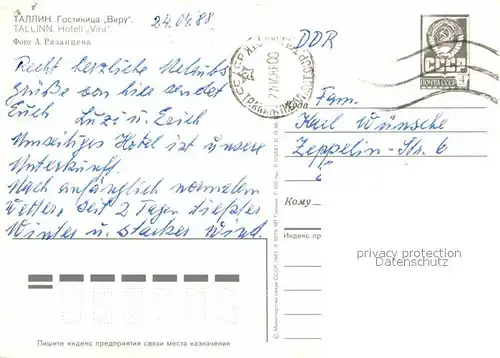 ТАЛЛИН. Гостиница „Виру".
TALLINN. Hotell „Viru"
Фото А. Рязанцева
24.04.88
Recht herzliche Urlaubs
grüße von hier sendet
Euch Luzi u. Erich
Umseitiges Hotel ist unsere
Unterkunft.
Nach anfänglich normalem
Wetter, seit 2 Tagen tiefster
Winter u. starker Wind.
DDR
СССР
ПОЧТА
4
Fam.
Karl Wünsche
Zeppelin-Str. 6
6
Кому
Индекс пр
privacy protection
Datenschutz
Пишите индекс предприятия связи места назначения
© Министерство связи СССР. 1987